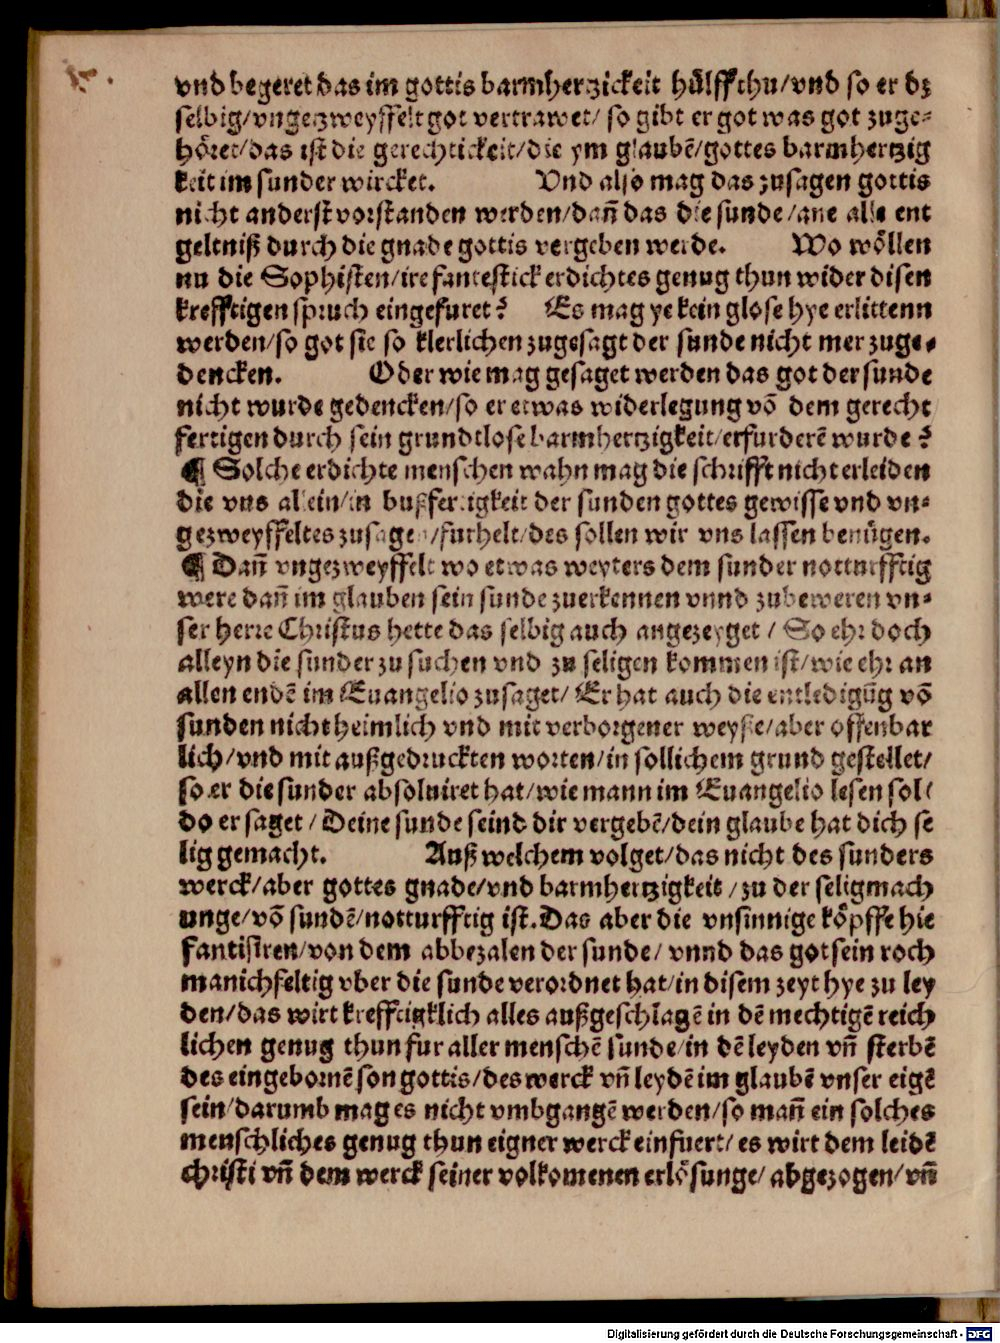 vnd begeret das im gottis barmhertzickeit hůlff thu/vnd so er dz
selbig/vngezweyffelt got vertrawet/ so gibt er got was got zuge-
höret/das ist die gerechtickeit/die ym glaubē/gottes barmhertzig
keit im sunder wircket. Vnd also mag das zusagen gottis
nicht anderst vorstanden werden/dañ das die sunde/ane alle ent
geltniß durch die gnade gottis vergeben werde. Wo wöllen
nu die Sophisten/ire fantestick erdichtes genug thun wider disen
krefftigen spruch eingefuret? Es mag ye kein glose hye erlittenn
werden/so got sie so klerlichen zugesagt der sunde nicht mer zuge-
dencken. Oder wie mag gesaget werden das got der sunde
nicht wurde gedencken/so er etwas widerlegung vō dem gerecht
fertigen durch sein grundtlose barmhertzigkeit/erfurderē wurde?
¶ Solche erdichte menschen wahn mag die schrifft nicht erleiden
die vns allein/in bußfertigkeit der sunden gottes gewisse vnd vn-
gezweyffeltes zusagen/furhelt/des sollen wir vns lassen benügen.
¶ Dañ vngezweyffelt wo etwas weyters dem sunder notturfftig
were dañ im glauben sein sunde zuerkennen vnnd zubeweren vn-
ser herre Christus hette das selbig auch angezeyget / So ehr doch
alleyn die sunder zu suchen vnd zu seligen kommen ist/wie ehr an
allen endē im Euangelio zusaget/ Er hat auch die entledigūg vō
sunden nicht heimlich vnd mit verborgener weyße/aber offenbar
lich/vnd mit außgedruckten worten/in sollichem grund gestellet/
so er die sunder absoluiret hat/wie mann im Euangelio lesen sol/
do er saget / Deine sunde seind dir vergebē/dein glaube hat dich se
lig gemacht. Auß welchem volget/das nicht des sunders
werck/aber gottes gnade/vnd barmhertzigkeit /zu der seligmach
unge/vō sundē/notturfftig ist. Das aber die vnsinnige köpffe hie
fantisiren/von dem abbezalen der sunde/ vnnd das got sein roch
manichfeltig vber die sunde verordnet hat/in disem zeyt hye zu ley
den/das wirt krefftigklich alles außgeschlagē in dē mechtigē reich
lichen genug thun fur aller menschē sunde/in dē leyden vñ sterbē
des eingebornē son gottis/des werck vñ leydē im glaubē vnser eigē
sein/darumb mag es nicht vmbgangē werden/so mañ ein solches
menschliches genug thun eigner werck einfuert/ es wirt dem leidē
christi vñ dem werck seiner volkomenen erlösunge/ abgezogen/vñ
Digitalisierung gefördert durch die Deutsche Forschungsgemeinschaft - DFG